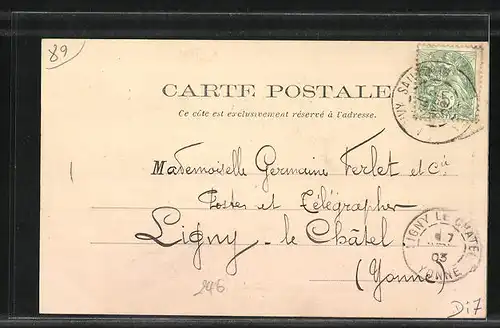 89
CARTE POSTALE
Ce côté est exclusivement réservé à l'adresse.
Mademoiselle Germaine Ferlet et Cie
Postes et Télégraphes
Ligny-le-Châtel
(Yonne)
LIGNY LE CHATEL
7
03
YONNE
Di7